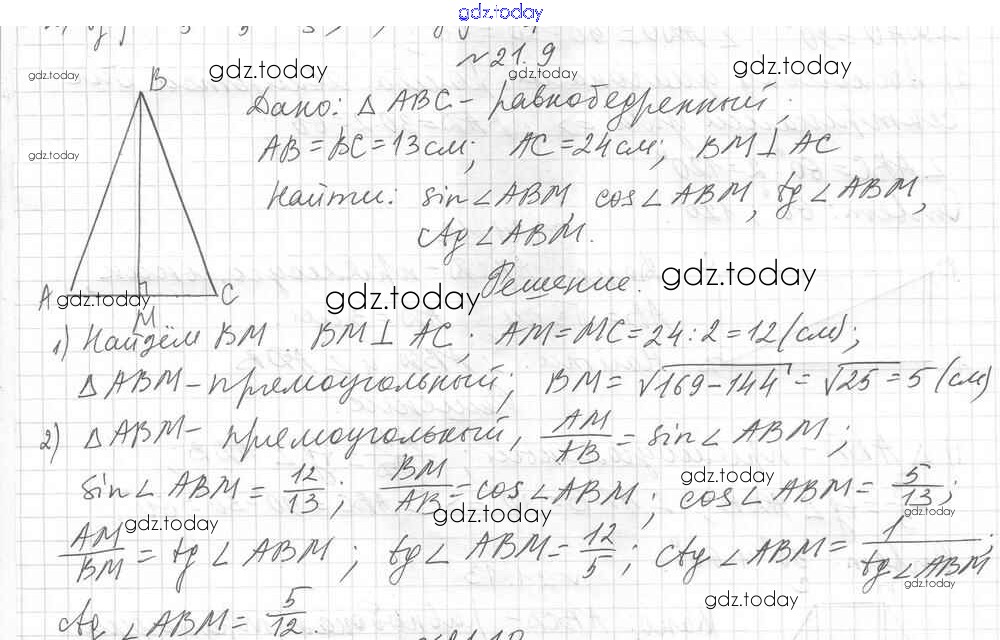 gdz.today
№21.9
gdz.today gdz.today gdz.today gdz.today
B
Дано: △ABC - равнобедренный;
gdz.today
AB = BC = 13 см; AC = 24 см; BM ⊥ AC
Найти: sin∠ABM, cos∠ABM, tg∠ABM,
ctg∠ABM.
Решение.
gdz.today
A C
gdz.today gdz.today
M
1) Найдём BM. BM ⊥ AC; AM = MC = 24 : 2 = 12 (см);
△ABM - прямоугольный; BM = √169-144 = √25 = 5 (см)
2) △ABM - прямоугольный, AM/AB = sin∠ABM;
gdz.today
sin∠ABM = 12/13; BM/AB = cos∠ABM; cos∠ABM = 5/13;
gdz.today gdz.today gdz.today
AM/BM = tg∠ABM; tg∠ABM = 12/5; ctg∠ABM = 1/tg∠ABM;
gdz.today
gdz.today
ctg∠ABM = 5/12.